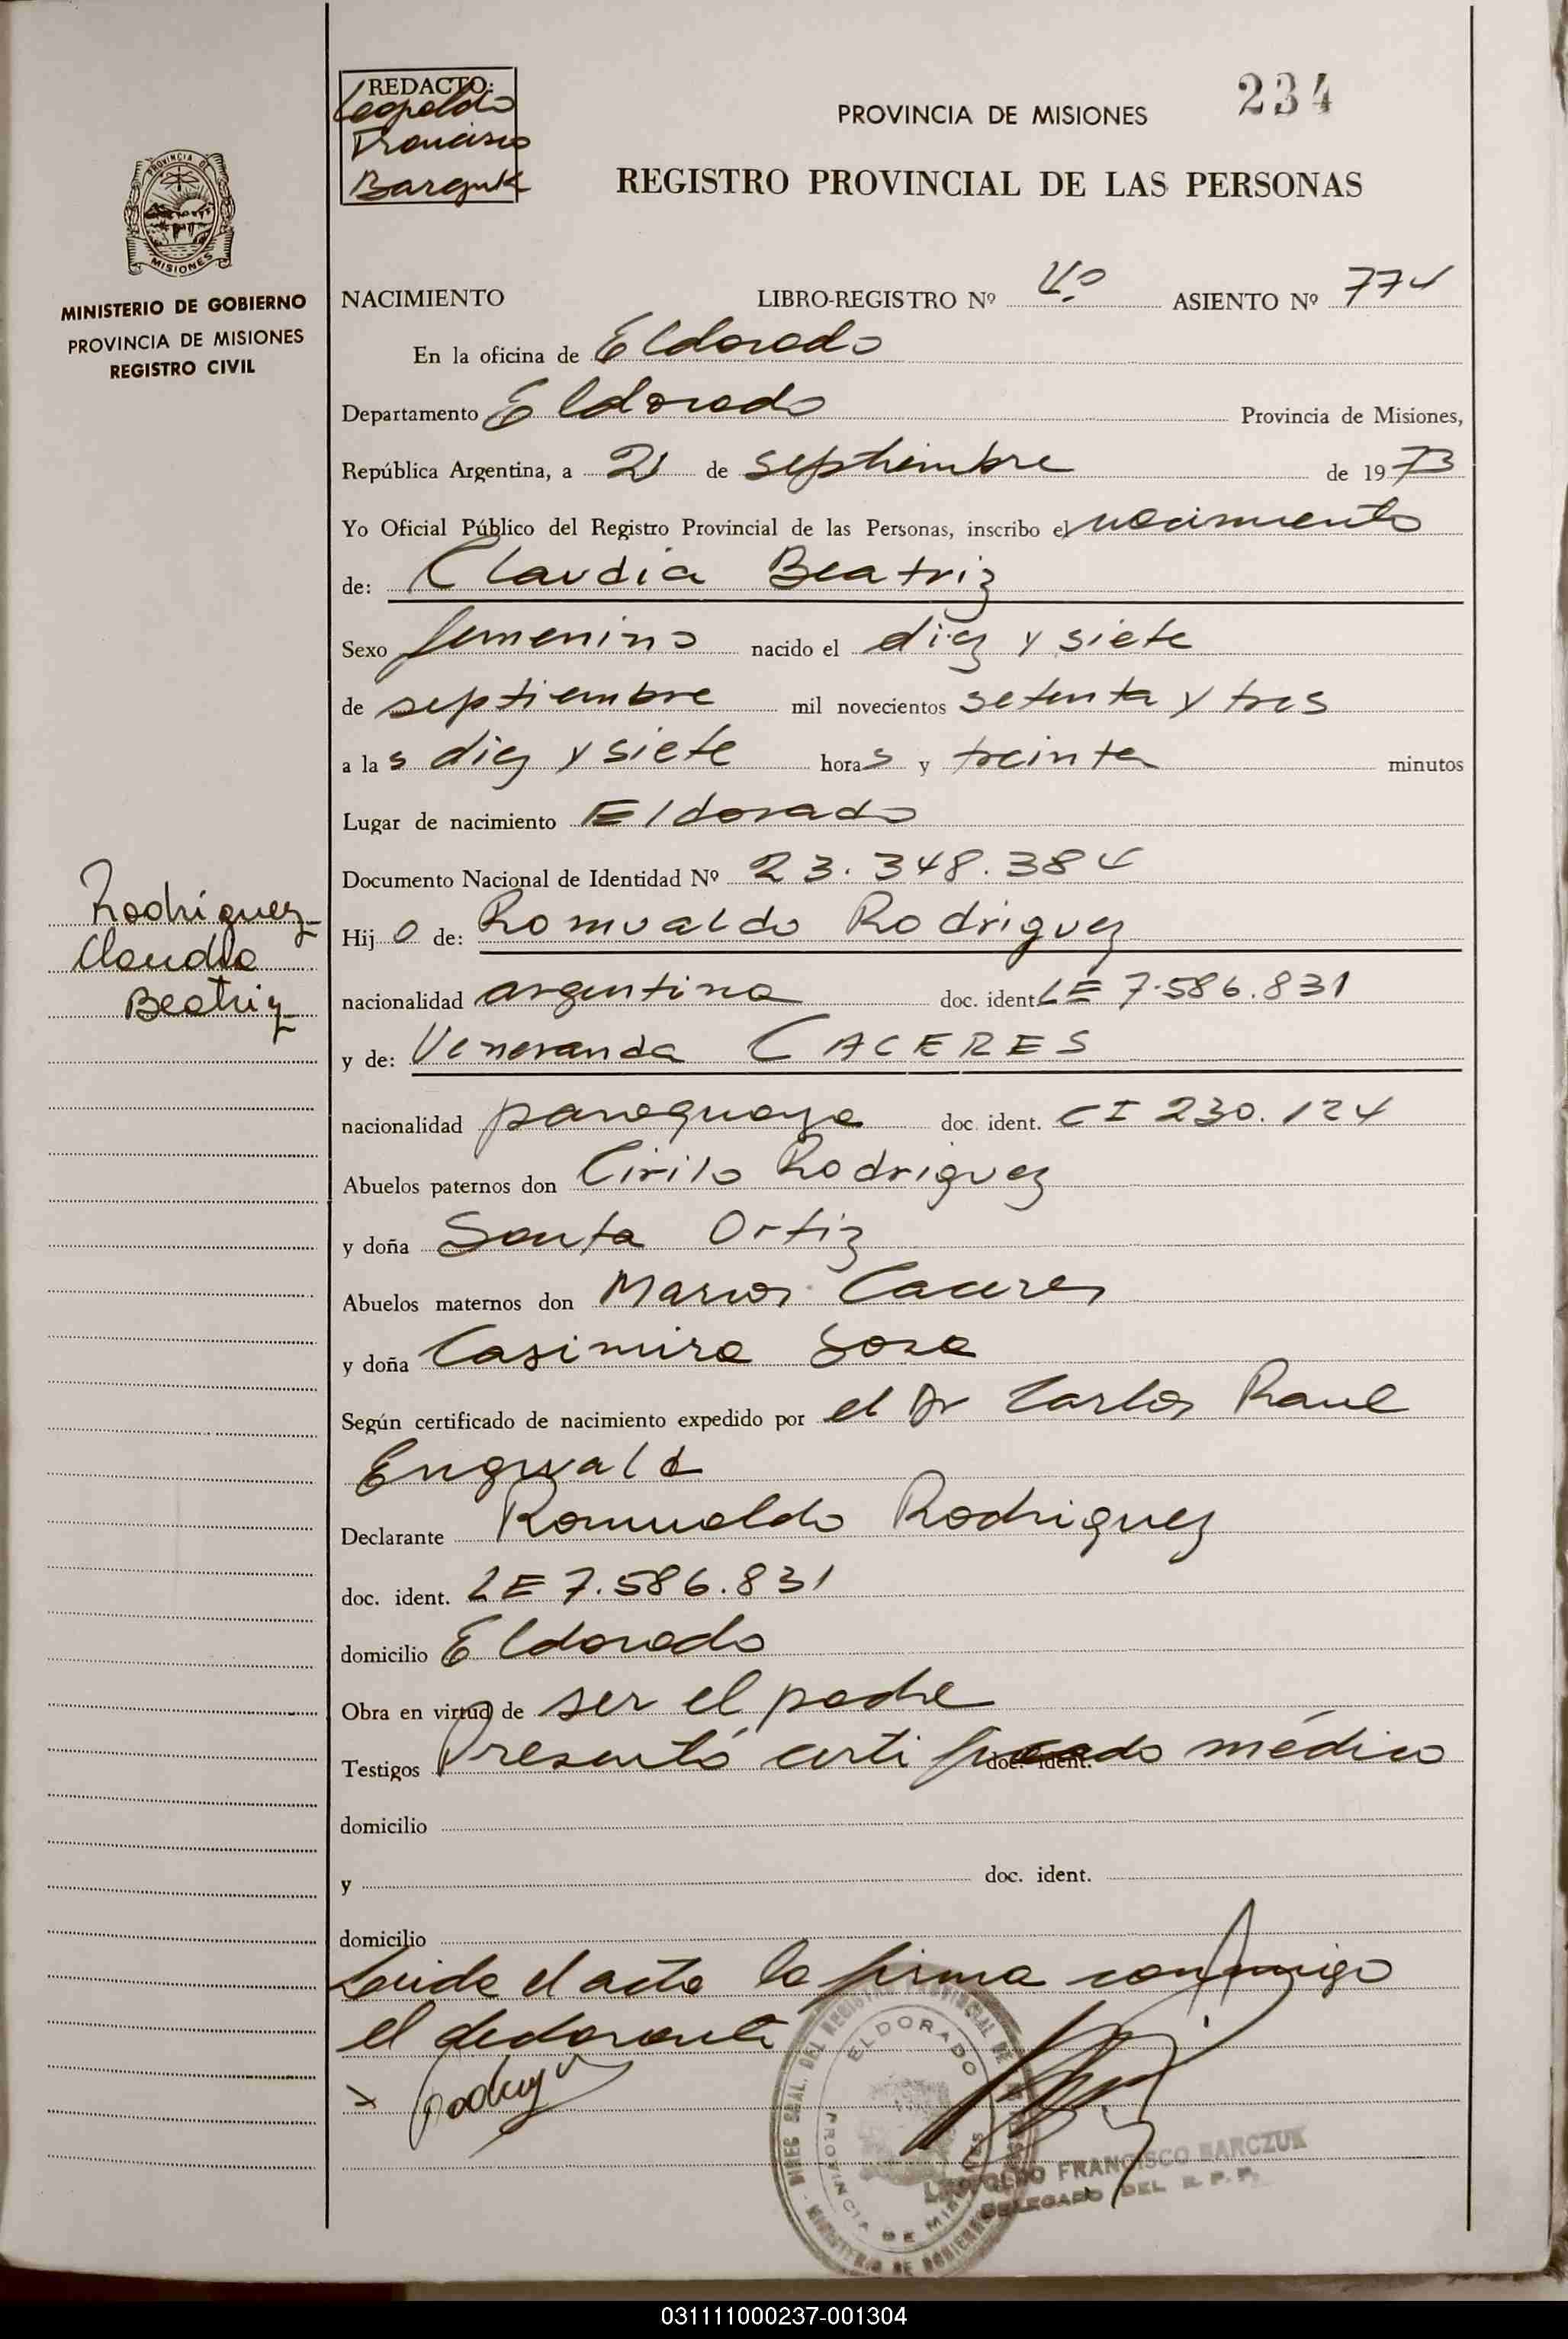 REDACTO:
Leopoldo
Francisco
Barczuk
PROVINCIA DE MISIONES
234
REGISTRO PROVINCIAL DE LAS PERSONAS
PROVINCIA DE
MISIONES
MINISTERIO DE GOBIERNO
PROVINCIA DE MISIONES
REGISTRO CIVIL
NACIMIENTO LIBRO-REGISTRO Nº ASIENTO Nº 774
En la oficina de Eldorado
Departamento Eldorado Provincia de Misiones,
República Argentina, a 21 de septiembre de 1973
Yo Oficial Público del Registro Provincial de las Personas, inscribo el nacimiento
de: Claudia Beatriz
Sexo femenino nacido el diez y siete
de septiembre mil novecientos setenta y tres
a las diez y siete horas y treinta minutos
Lugar de nacimiento Eldorado
Documento Nacional de Identidad Nº 23.348.384
Rodriguez
Claudia
Beatriz
Hij a de: Romualdo Rodriguez
nacionalidad argentina doc. ident. LE 7.586.831
y de: Veneranda CACERES
nacionalidad paraguaya doc. ident. CI 230.124
Abuelos paternos don Cirilo Rodriguez
y doña Santa Ortiz
Abuelos maternos don Caceres
y doña Casimira Sosa
Según certificado de nacimiento expedido por el Dr Carlos Raul
Engwald
Declarante Romualdo Rodriguez
doc. ident. LE 7.586.831
domicilio Eldorado
Obra en virtud de ser el padre
Testigos Presentó certificado médico doc. ident.
domicilio
y doc. ident.
domicilio
Leida el acta la firma conmigo
el declarante
x Rodrig
DIREC GRAL. DEL REGISTRO PROVINCIAL DE
ELDORADO
PROVINCIA DE MISIONES
MINISTERIO DE GOBIERNO
LEOPOLDO FRANCISCO BARCZUK
DELEGADO DEL R. P. P.
031111000237-001304